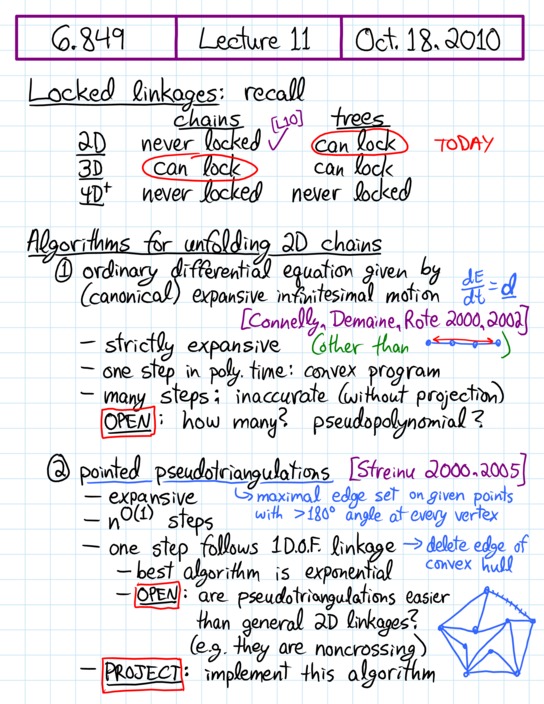 6.849 Lecture 11 Oct. 18, 2010
Locked linkages: recall
chains [L10] trees
2D never locked ✓ can lock TODAY
3D can lock can lock
4D+ never locked never locked
Algorithms for unfolding 2D chains
① ordinary differential equation given by
(canonical) expansive infinitesimal motion dE/dt = d
[Connelly, Demaine, Rote 2000, 2002]
– strictly expansive (other than )
– one step in poly. time: convex program
– many steps; inaccurate (without projection)
OPEN: how many? pseudopolynomial?
② pointed pseudotriangulations [Streinu 2000, 2005]
– expansive ↳ maximal edge set on given points
– n^O(1) steps with >180° angle at every vertex
– one step follows 1 D.O.F. linkage → delete edge of
convex hull
– best algorithm is exponential
– OPEN: are pseudotriangulations easier
than general 2D linkages?
(e.g. they are noncrossing)
– PROJECT: implement this algorithm